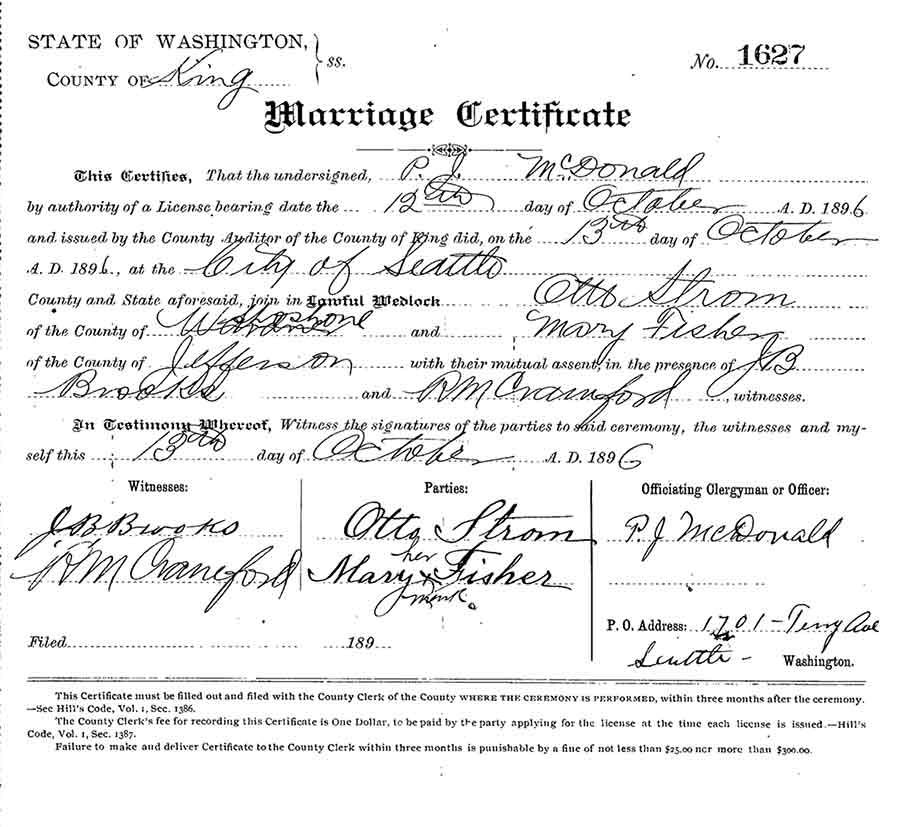 STATE OF WASHINGTON, } ss.
COUNTY OF King
No. 1627
Marriage Certificate
This Certifies, That the undersigned, P. J. McDonald
by authority of a License bearing date the 12th day of October A. D. 1896
and issued by the County Auditor of the County of King did, on the 13th day of October
A. D. 1896, at the City of Seattle
County and State aforesaid, join in Lawful Wedlock Otto Strom
of the County of Shoshone and Mary Fisher
of the County of Jefferson with their mutual assent, in the presence of J B
Brooks and R M Crawford, witnesses.
In Testimony Whereof, Witness the signatures of the parties to said ceremony, the witnesses and my-
self this 13th day of October A. D. 1896
Witnesses:
J B Brooks
R M Crawford
Filed 189
Parties:
Otto Strom
her
Mary x Fisher
mark.
Officiating Clergyman or Officer:
P. J McDonald
P. O. Address: 1701 - Terry Ave
Seattle - Washington.
This Certificate must be filled out and filed with the County Clerk of the County WHERE THE CEREMONY IS PERFORMED, within three months after the ceremony.
—See Hill's Code, Vol. 1, Sec. 1386.
The County Clerk's fee for recording this Certificate is One Dollar, to be paid by the party applying for the license at the time each license is issued.—Hill's
Code, Vol. 1, Sec. 1387.
Failure to make and deliver Certificate to the County Clerk within three months is punishable by a fine of not less than $25.00 nor more than $300.00.